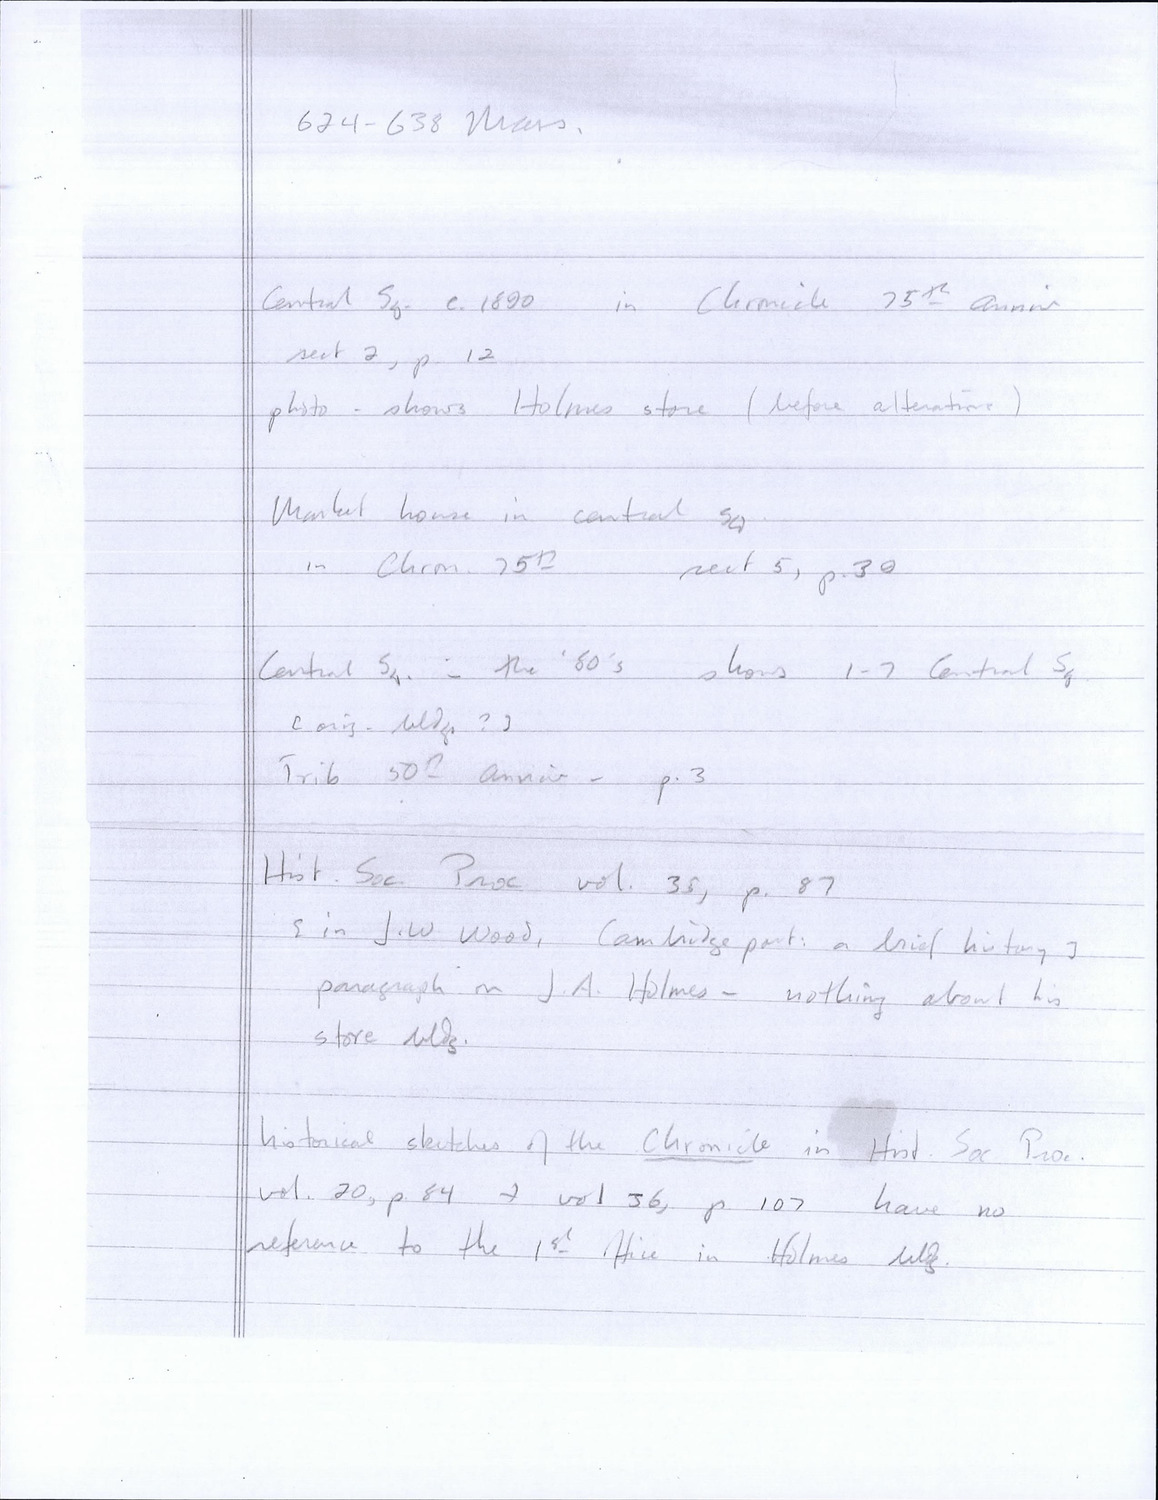 624-638 Mass.
Central Sq. c. 1890 in Chronicle 75th anniv
sect 2, p. 12
photo - shows Holmes store (before alterations)
Market house in central sq.
in Chron. 75th sect 5, p. 30
Central Sq. - the '80's shows 1-7 Central Sq
[orig. bldg. ?]
Trib 50th anniv - p. 3
Hist. Soc. Proc vol. 35, p. 87
[in J.W Wood, Cambridgeport: a brief history]
paragraph on J.A. Holmes - nothing about his
store bldg.
historical sketches of the Chronicle in Hist. Soc Proc.
vol. 20, p. 84 & vol 36, p 107 have no
reference to the 1st office in Holmes bldg.